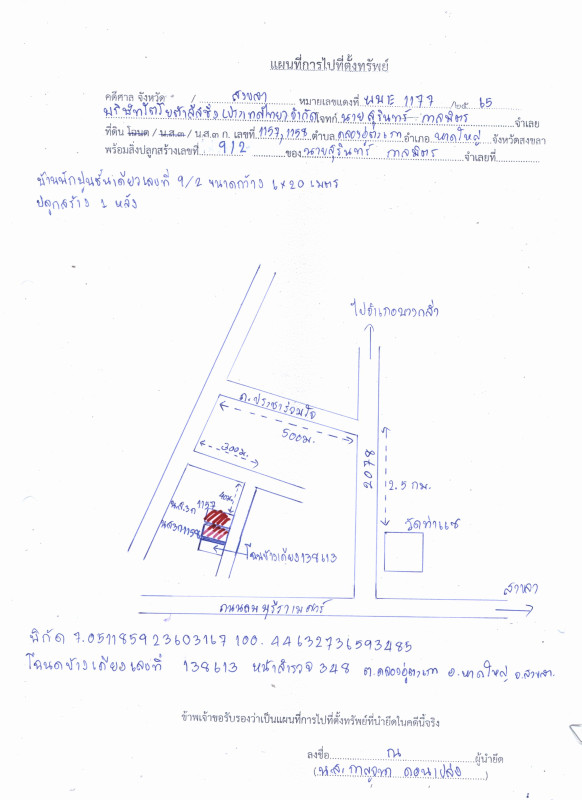 แผนที่การไปที่ตั้งทรัพย์
คดีศาล จังหวัด / สงขลา หมายเลขแดงที่ ผบE 1177 /๒๕ 65
บริษัทโตโยต้าลีสซิ่ง (ประเทศไทย) จำกัด โจทก์ นายสุรินทร์ กาลมิตร จำเลย
ที่ดิน โฉนด / น.ส.๓ / น.ส.๓ ก. เลขที่ 1157, 1158 ตำบล คลองอู่ตะเภา อำเภอ หาดใหญ่ จังหวัดสงขลา
พร้อมสิ่งปลูกสร้างเลขที่ 9/2 ของ นายสุรินทร์ กาลมิตร จำเลยที่
บ้านพักปูนชั้นเดียวเลขที่ 9/2 ขนาดกว้าง 6x20 เมตร
ปลูกสร้าง 1 หลัง
ไปอำเภอบางกล่ำ
ถ.ประชาร่วมใจ
500ม.
300ม.
2078
2.5 กม.
40ม.
น.ส.3ก 1157
น.ส.3ก 1158
วัดท่าแซ
โฉนดข้างเคียง 138613
สงขลา
ถนนลพบุรีราเมศวร์
พิกัด 7.051185923603167 100.44632736593485
โฉนดข้างเคียงเลขที่ 138613 หน้าสำรวจ 348 ต.คลองอู่ตะเภา อ.หาดใหญ่ จ.สงขลา
ข้าพเจ้าขอรับรองว่าเป็นแผนที่การไปที่ตั้งทรัพย์ที่นำยึดในคดีนี้จริง
ลงชื่อ ณ ผู้นำยึด